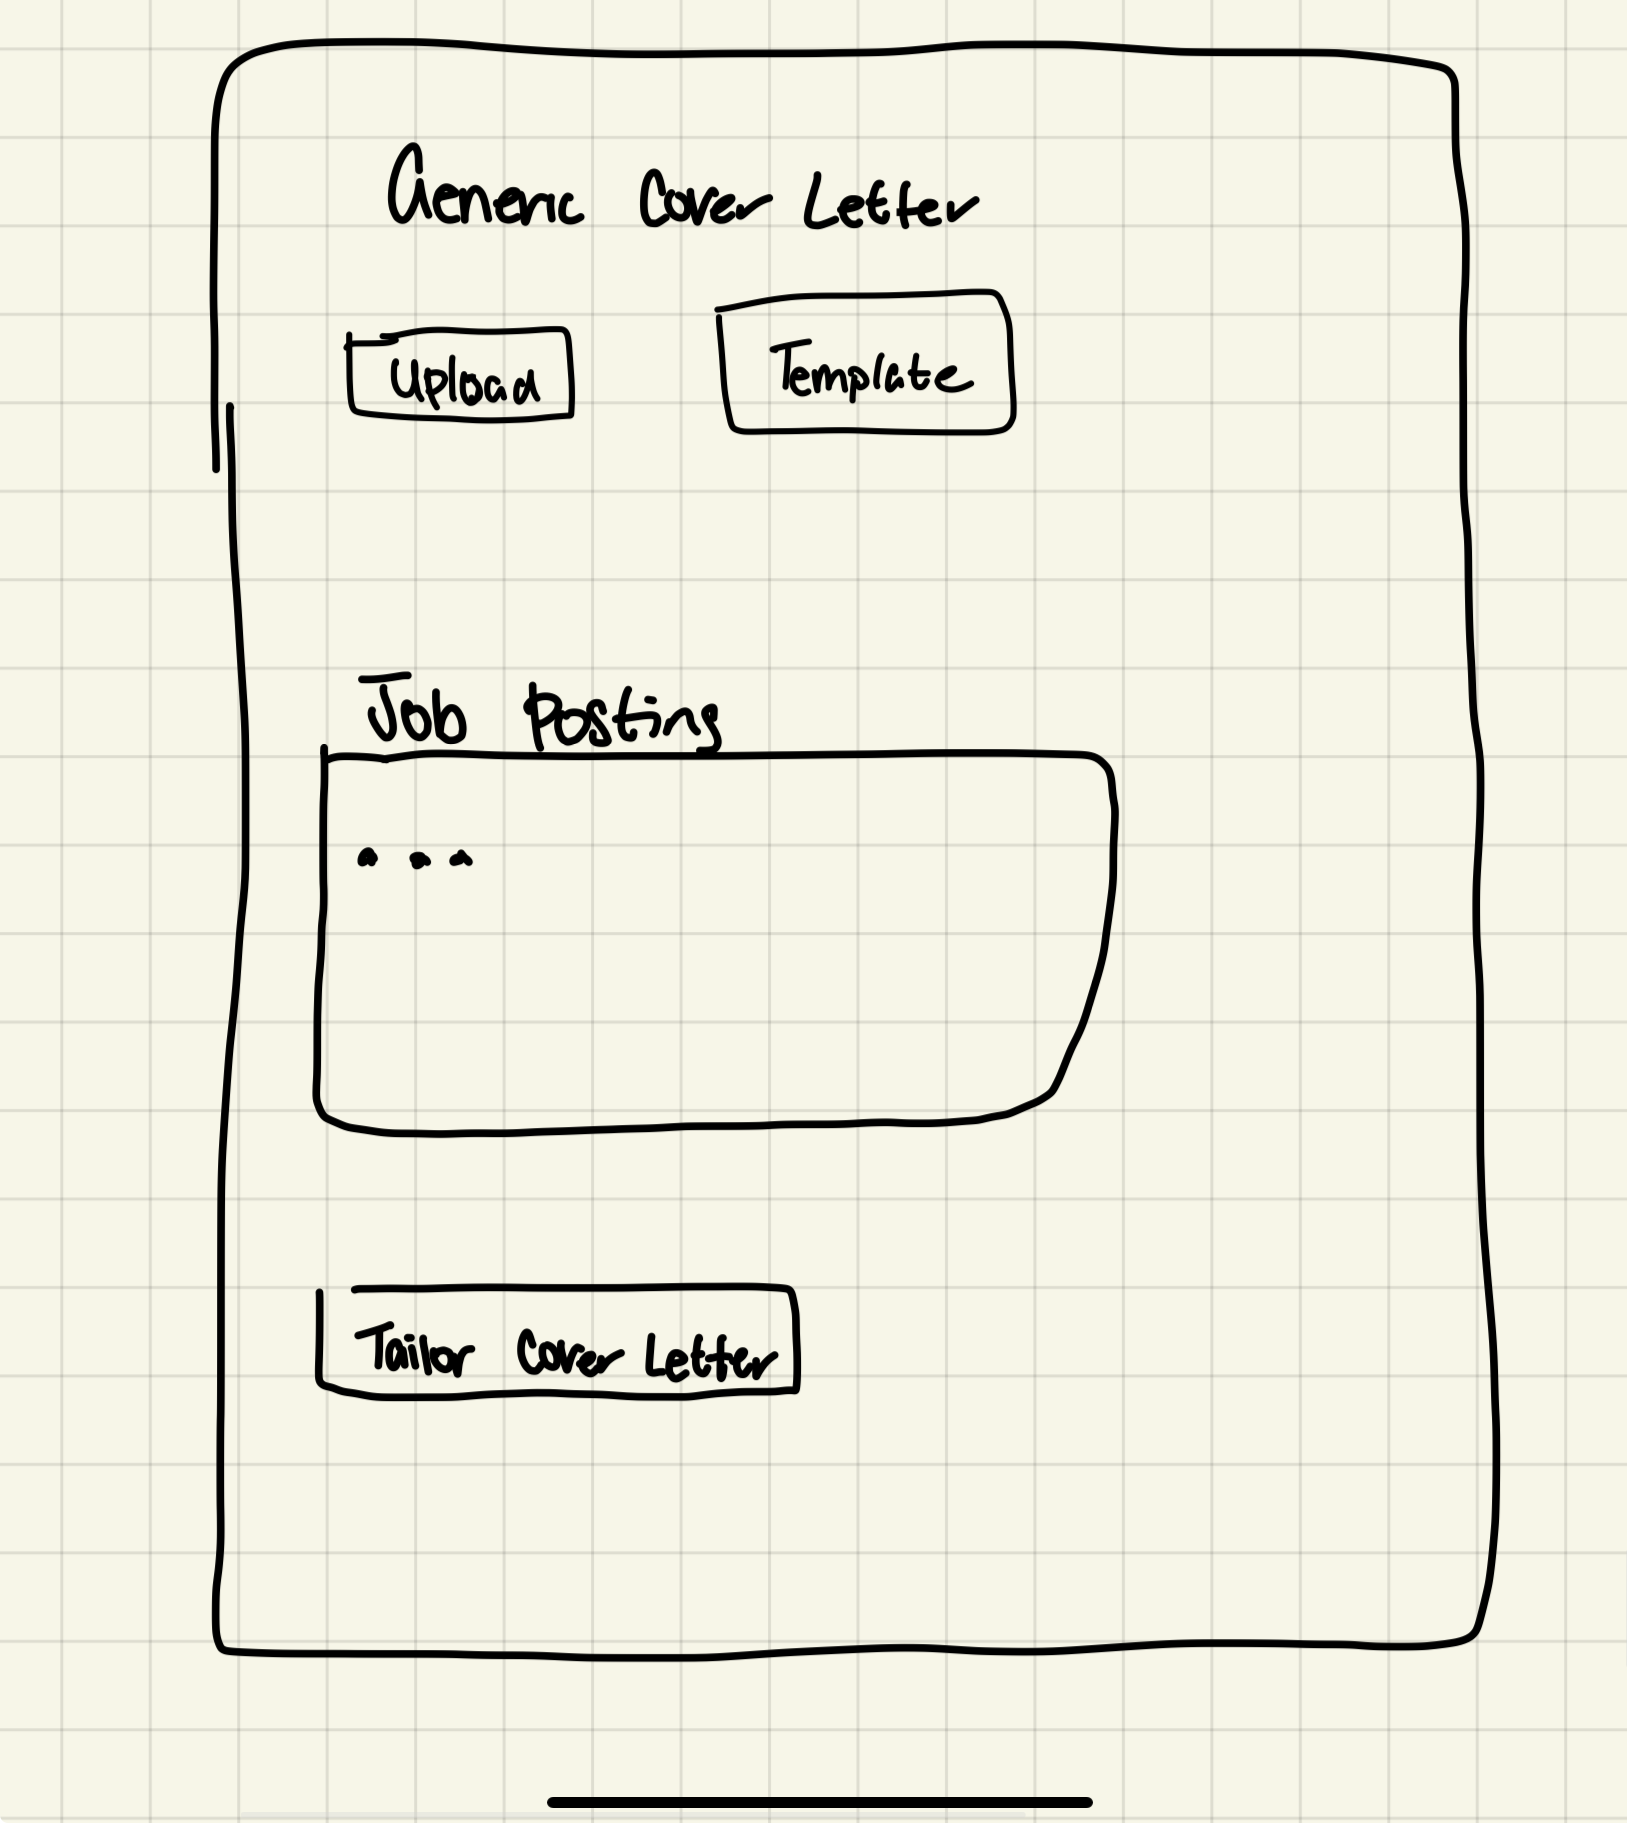 Generic Cover Letter
Upload
Template
Job Posting
...
Tailor Cover Letter